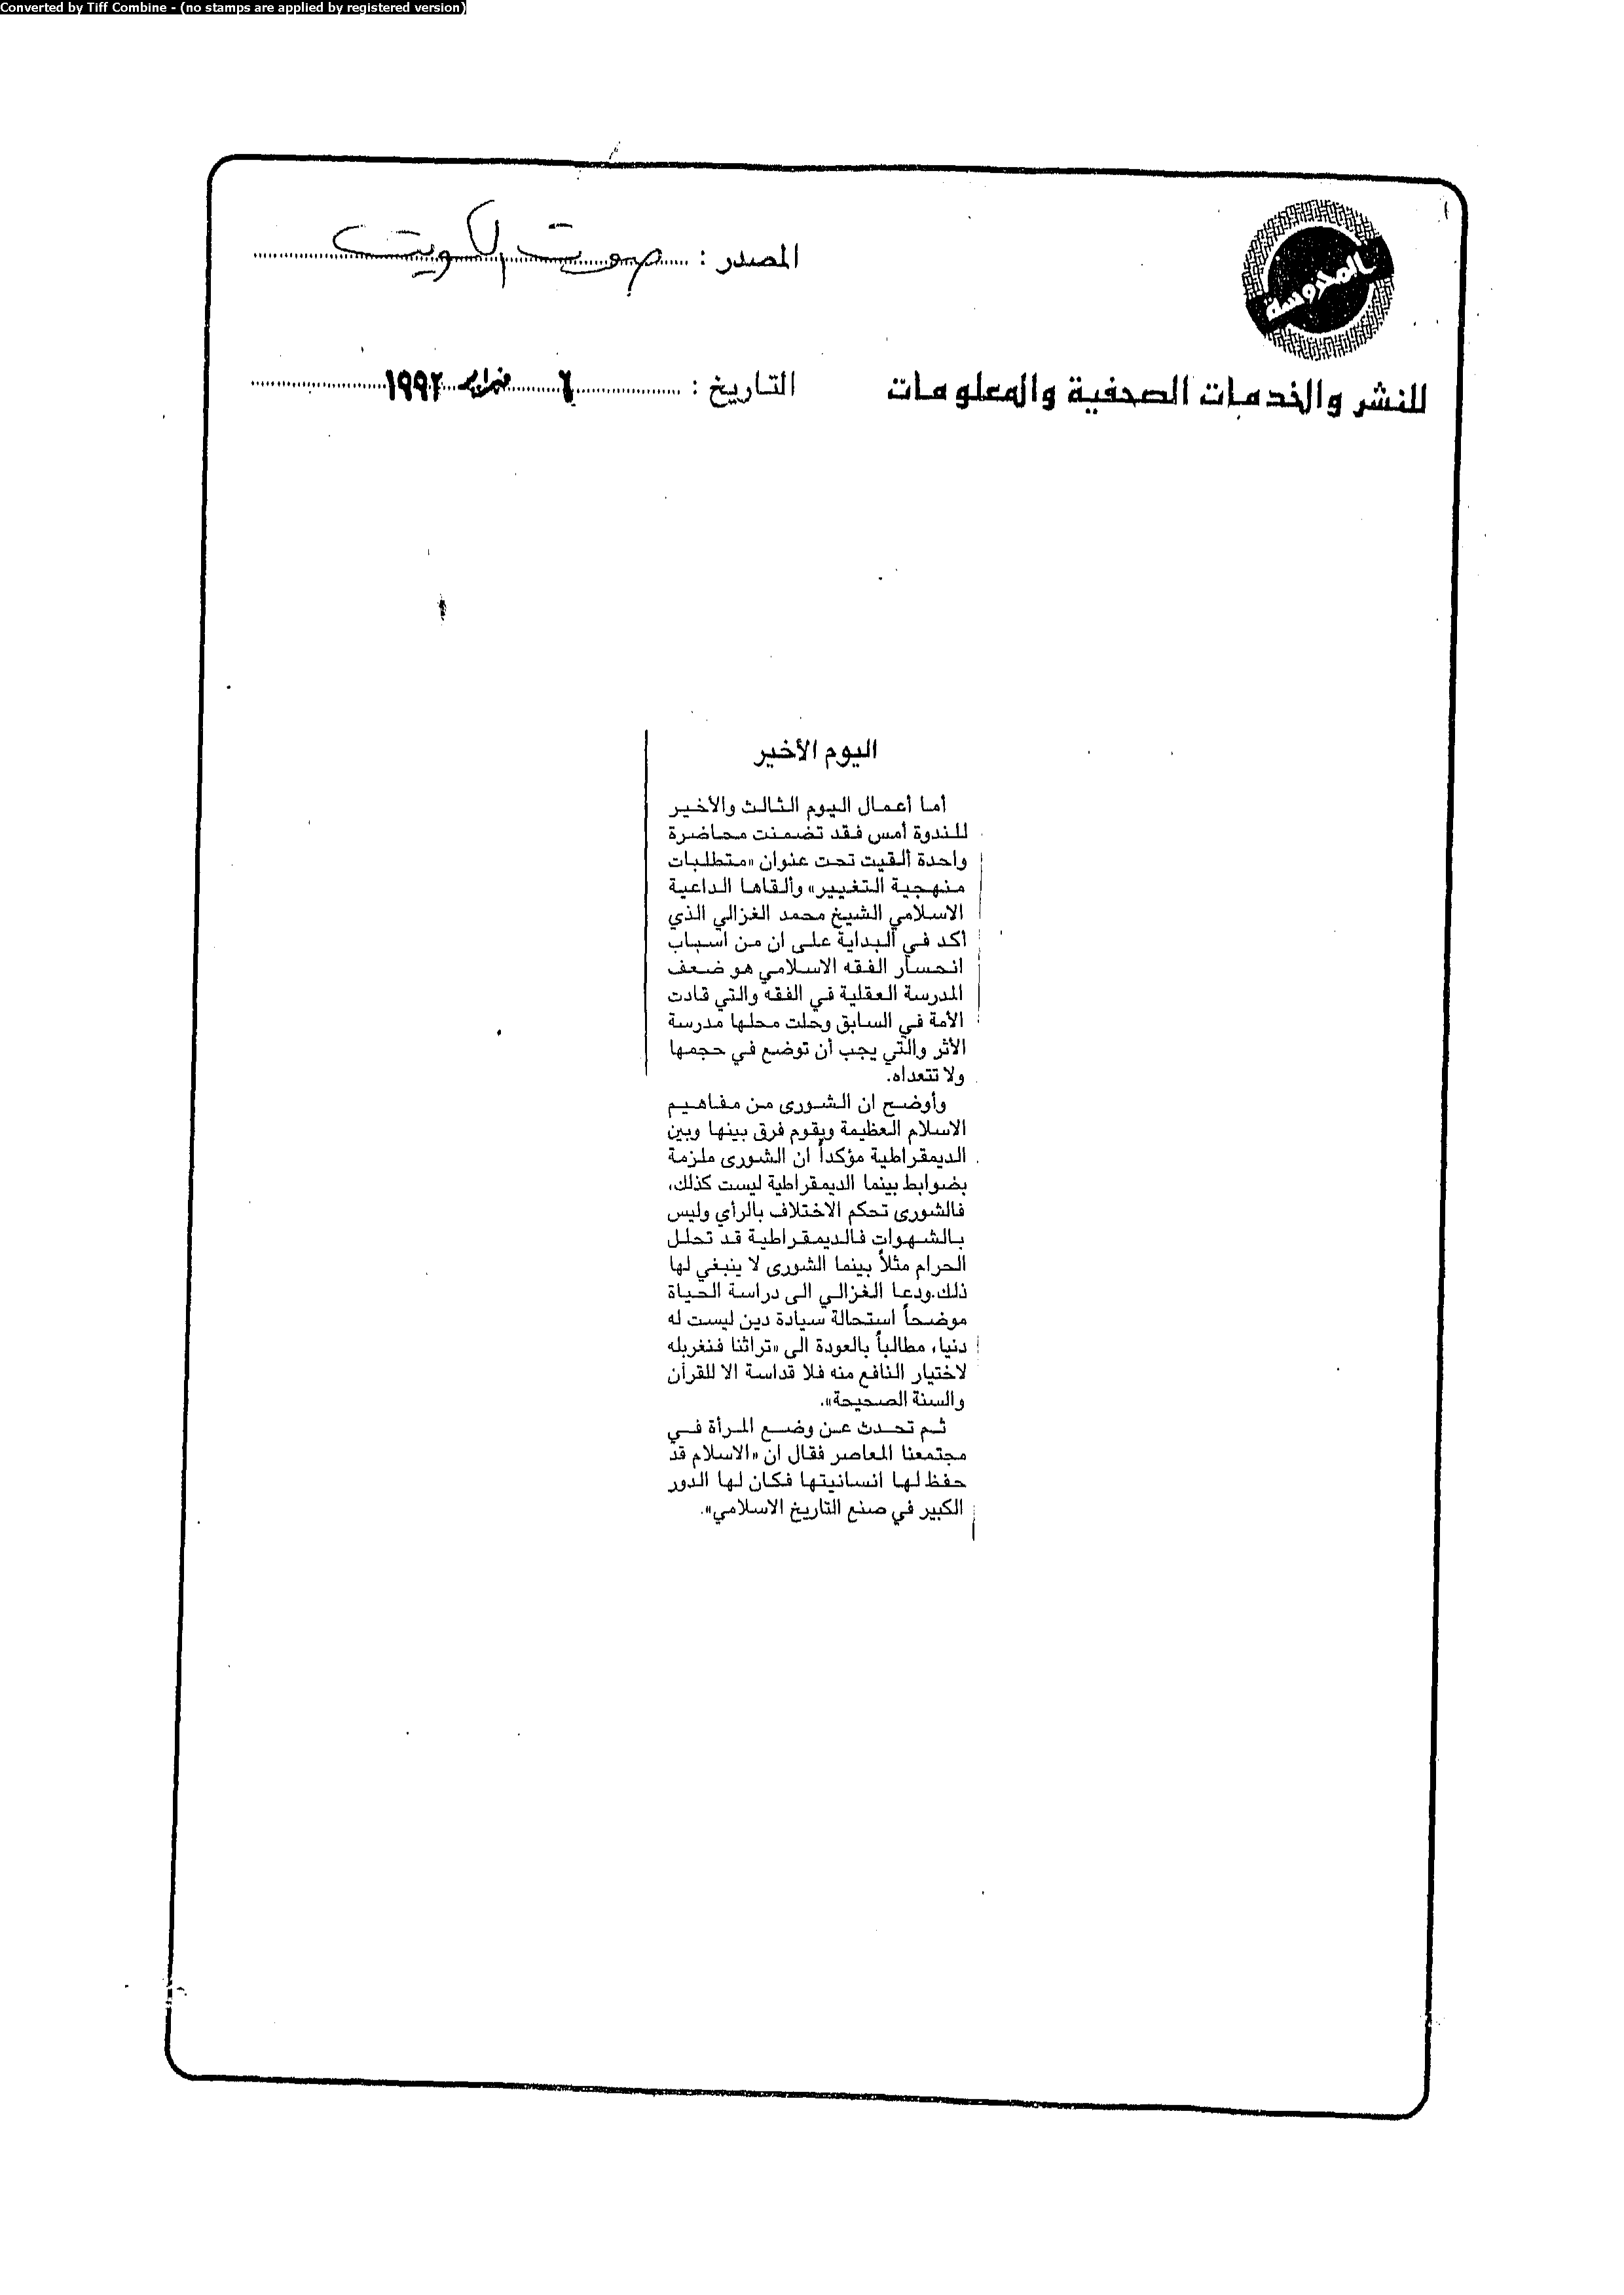 Converted by Tiff Combine - (no stamps are applied by registered version)
المحروسة
المصدر : صوت الكويت
للنشر والخدمات الصحفية والمعلومات
التاريخ : ٦ فبراير ١٩٩٢
اليوم الأخير
أما أعمال اليوم الثالث والأخير
للندوة أمس فقد تضمنت محاضرة
واحدة ألقيت تحت عنوان «متطلبات
منهجية التغيير» وألقاها الداعية
الاسلامي الشيخ محمد الغزالي الذي
أكد في البداية على ان من أسباب
انحسار الفقه الاسلامي هو ضعف
المدرسة العقلية في الفقه والتي قادت
الأمة في السابق وحلت محلها مدرسة
الأثر والتي يجب أن توضع في حجمها
ولا تتعداه.
وأوضح ان الشورى من مفاهيم
الاسلام العظيمة ويقوم فرق بينها وبين
الديمقراطية مؤكداً ان الشورى ملزمة
بضوابط بينما الديمقراطية ليست كذلك،
فالشورى تحكم الاختلاف بالرأي وليس
بالشهوات فالديمقراطية قد تحلل
الحرام مثلاً بينما الشورى لا ينبغي لها
ذلك.ودعا الغزالي الى دراسة الحياة
موضحاً استحالة سيادة دين ليست له
دنيا، مطالباً بالعودة الى «تراثنا فنغربله
لاختيار النافع منه فلا قداسة الا للقرآن
والسنة الصحيحة».
ثم تحدث عن وضع المرأة في
مجتمعنا المعاصر فقال ان «الاسلام قد
حفظ لها انسانيتها فكان لها الدور
الكبير في صنع التاريخ الاسلامي».